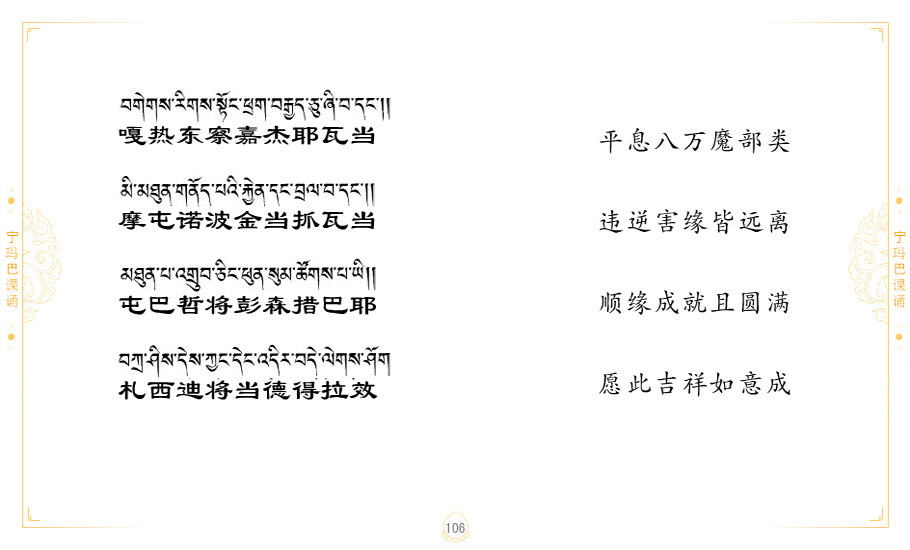 བགེགས་རིགས་སྟོང་ཕྲག་བརྒྱད་ཅུ་ཞི་བ་དང་།།
嘎热东察嘉杰耶瓦当
平息八万魔部类
མི་མཐུན་གནོད་པའི་རྐྱེན་དང་བྲལ་བ་དང་།།
摩屯诺波金当抓瓦当
违逆害缘皆远离
མཐུན་པ་འགྲུབ་ཅིང་ཕུན་སུམ་ཚོགས་པ་ཡི།།
屯巴哲将彭森措巴耶
顺缘成就且圆满
བཀྲ་ཤིས་དེས་ཀྱང་དེང་འདིར་བདེ་ལེགས་ཤོག
札西迪将当德得拉效
愿此吉祥如意成
宁玛巴课诵
宁玛巴课诵
106